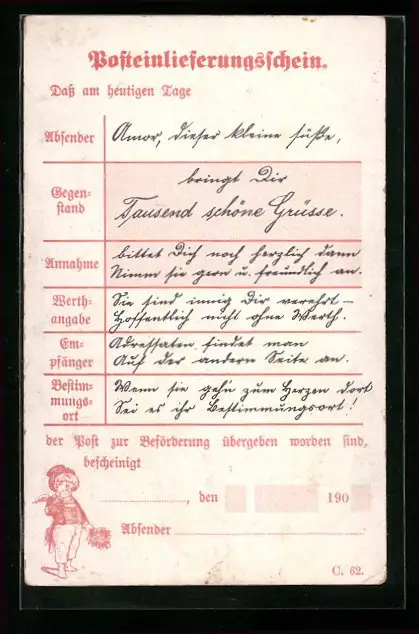 Posteinlieferungsschein.
Daß am heutigen Tage
Absender Amor, dieser kleine süße,
bringt Dir
Gegen-
stand Tausend schöne Grüsse.
bittet Dich noch herzlich dann
Annahme Nimm sie gern u. freundlich an.
Werth- Sie sind innig Dir verehrt –
angabe Hoffentlich nicht ohne Werth.
Em- Adressaten findet man
pfänger Auf der andern Seite an.
Bestim- Wenn sie gehn zum Herzen dort
mungs- Sei es ihr Bestimmungsort!
ort
der Post zur Beförderung übergeben worden sind,
bescheinigt
, den 190
Absender
C. 62.